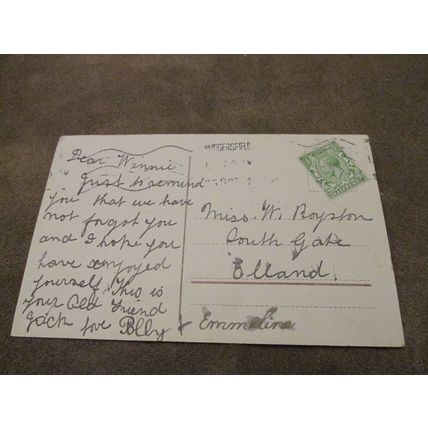 HUDDERSFIELD
Dear Winnie
Just to remind
you that we have
not forgot you
and I hope you
have enjoyed
yourself. This is
your Old Friend
Jack love Billy & Emmeline
Miss. W. Royston
South Gate
Elland.